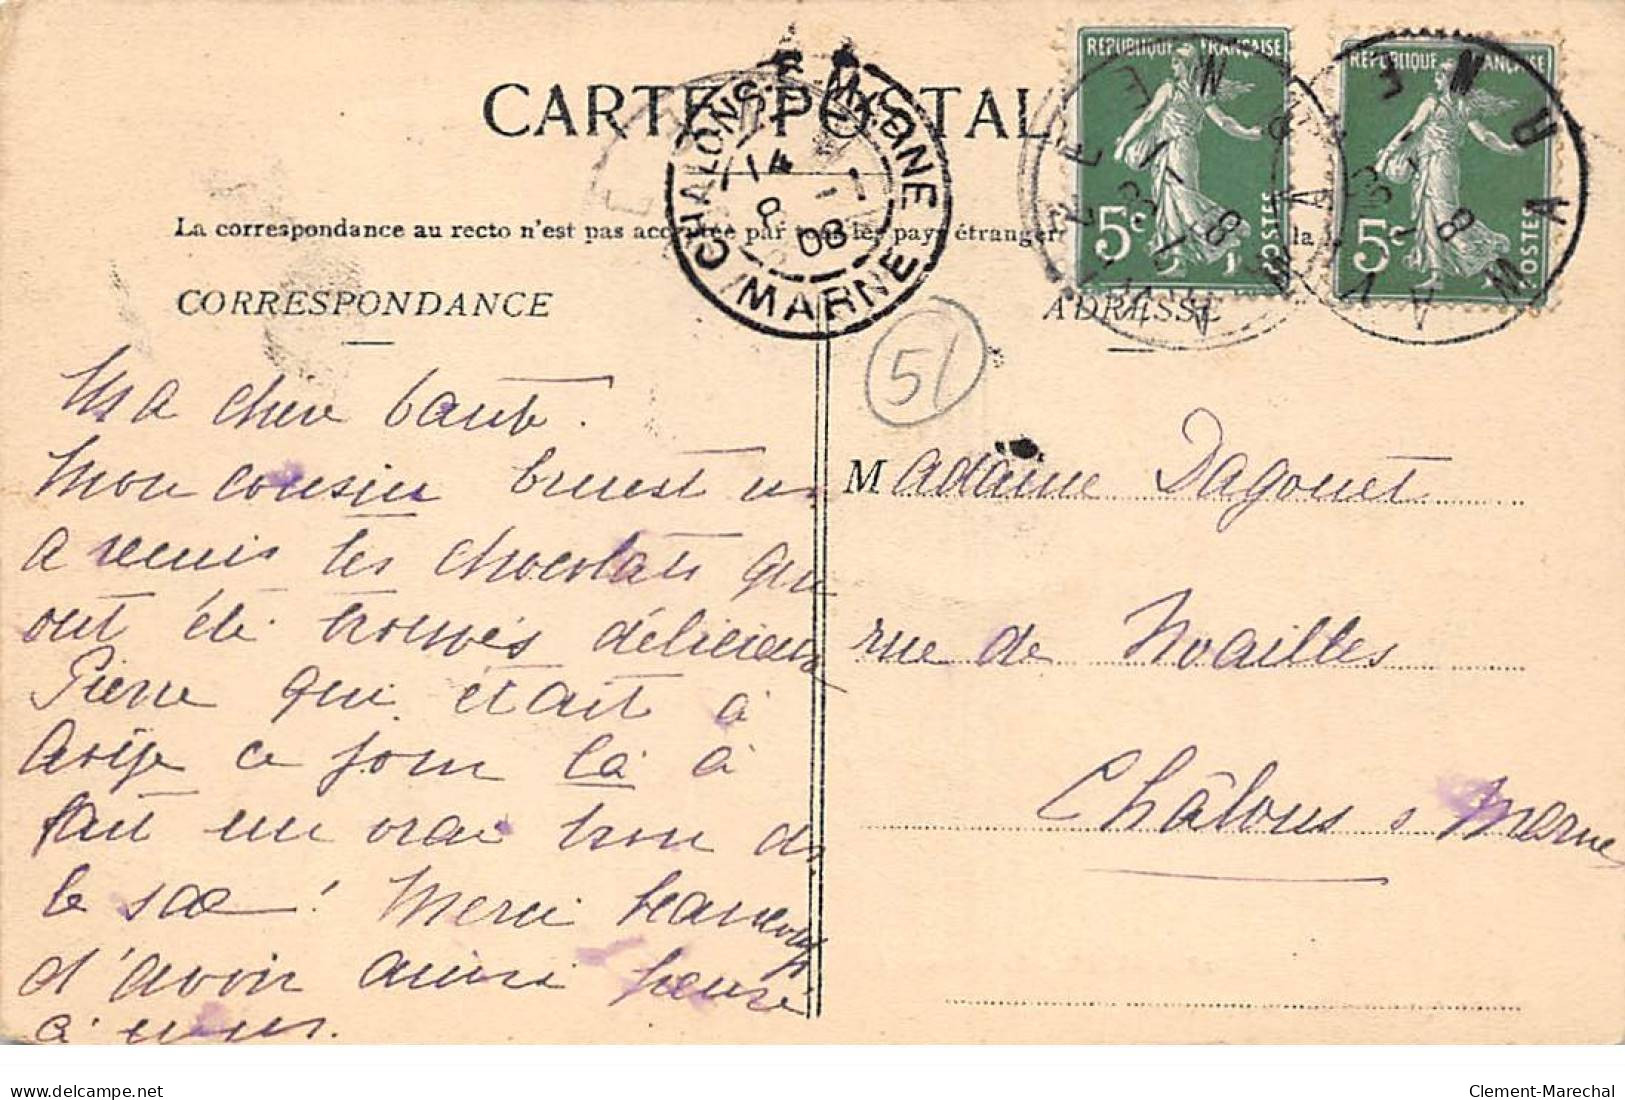 CARTE POSTALE
La correspondance au recto n'est pas acceptée par tous les pays étrangers la
CORRESPONDANCE
ADRESSE
CHALONS-S-MARNE
14
8
08
(MARNE)
REPUBLIQUE FRANÇAISE
5c
POSTES
REPUBLIQUE FRANÇAISE
5c
POSTES
51
Ma chère tante.
Mon cousin
a remis les chocolats qui
ont été trouvés délicieux
Pierre qui était à
ce jour là a
fait un vrai trou dans
le sac ! Merci beaucoup
d'avoir ainsi pensé
à nous.
Madame Dagouet
rue de Noailles
Châlons s Marne
delcampe.net
Clement-Marechal